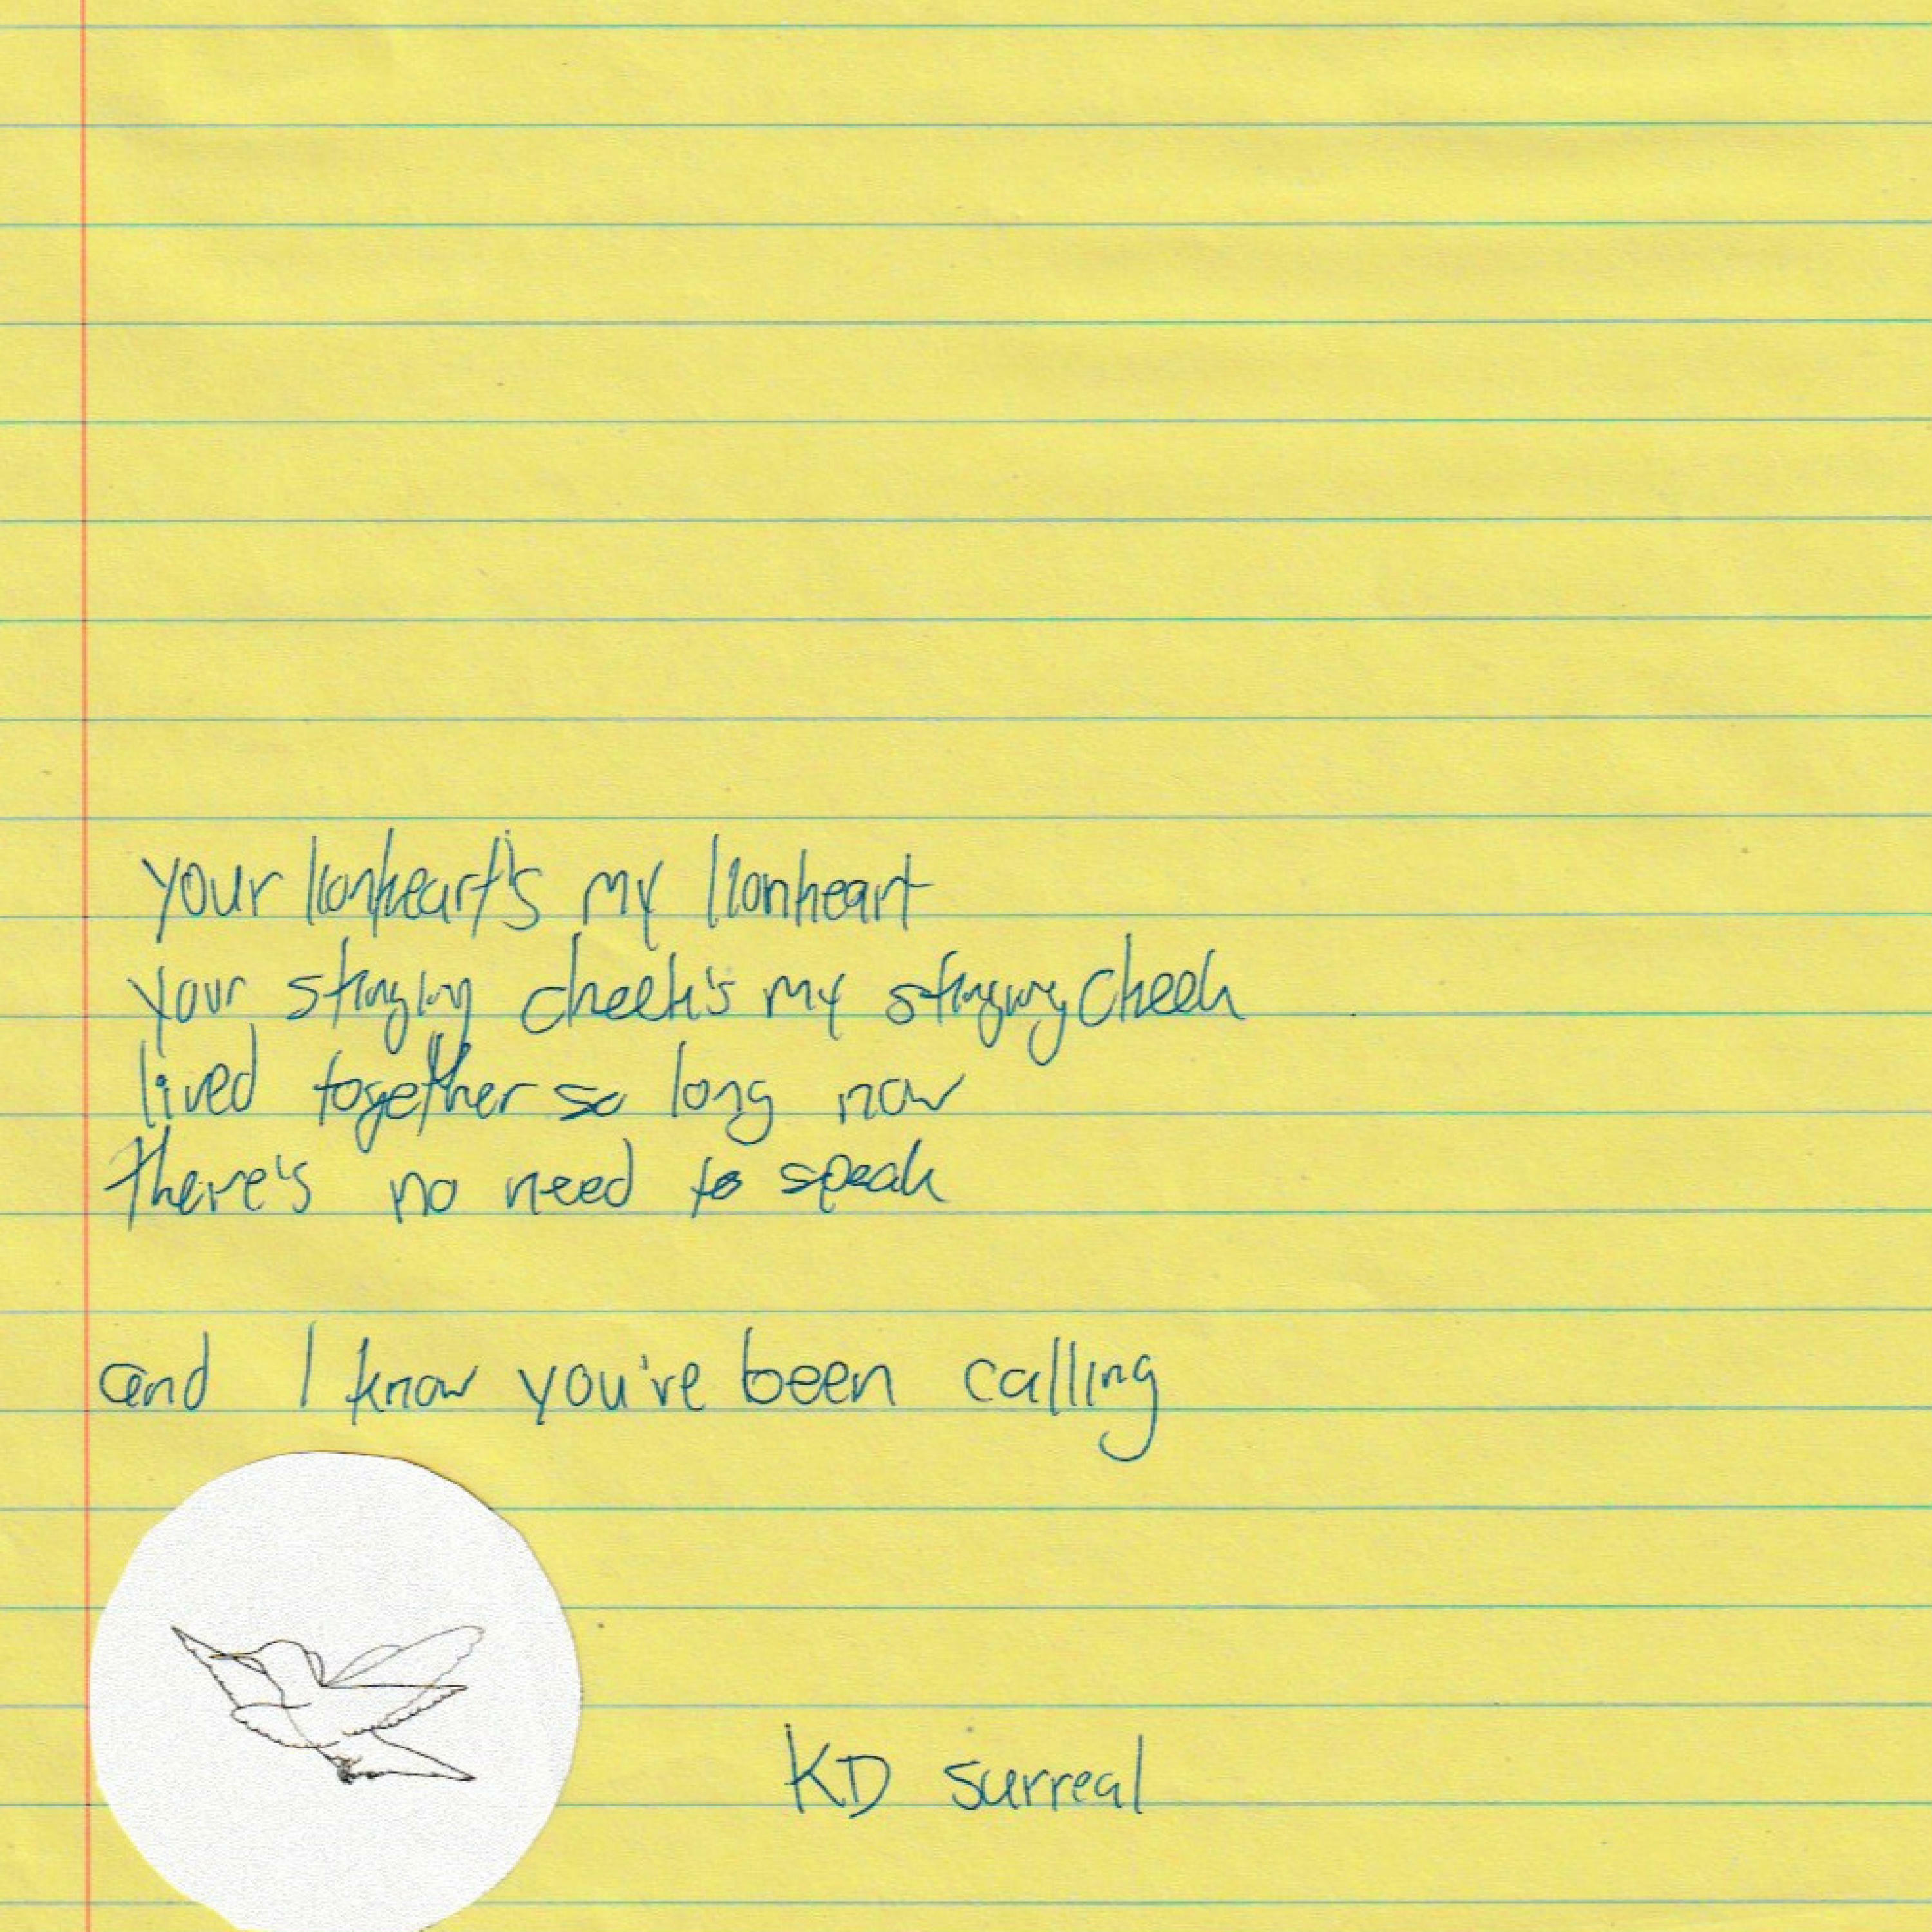 your lionheart's my lionheart
your stinging cheek's my stinging cheek
lived together so long now
there's no need to speak
and I know you've been calling
KD surreal